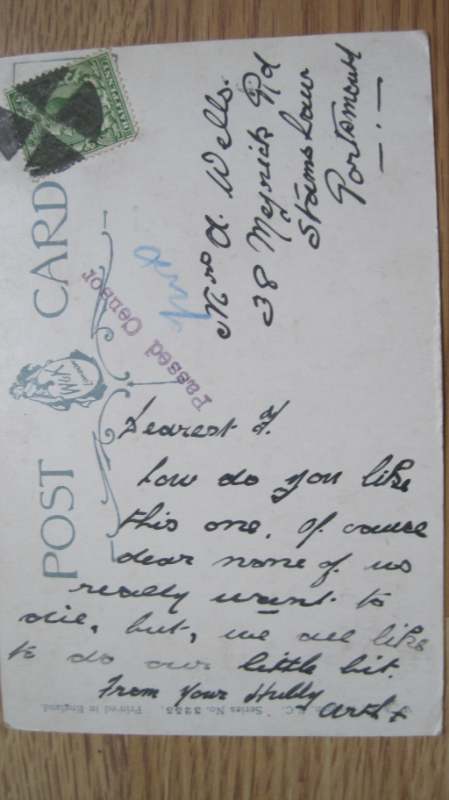 POST CARD
Passed Censor
Mrs A. Wells.
38 Meyrick Rd
Stamshaw
Portsmouth
Dearest F.
how do you like
this one, Of cause
dear none of us
really want to
die, but, we all like
to do our little bit.
From Your
Arth x
Series No. 3255. Printed in England.